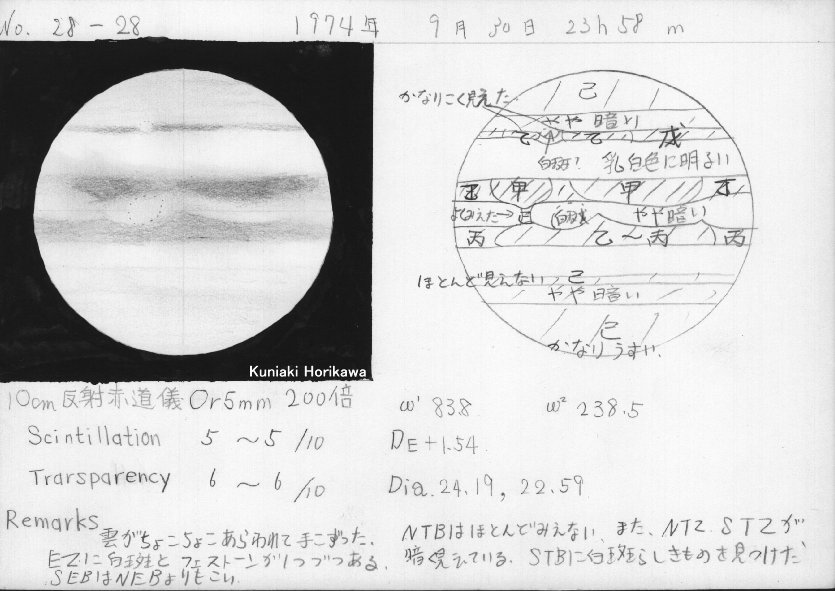 No. 28-28 1974年 9月 30日 23h 58m
かなりこく見えた
己
やや暗い
乙 乙 戊
白斑? 乳白色に明るい
甲 甲
よくみえた→ 白斑 やや暗い
丙 乙〜丙 丙
ほとんど見えない 己
やや暗い
己
かなりうすい.
Kuniaki Horikawa
10cm反射赤道儀 Or5mm 200倍 ω¹ 83.8 ω² 238.5
Scintillation 5 〜 5 /10 DE +1.54
Trarsparency 6 〜 6 /10 Dia. 24.19, 22.59
Remarks
雲がちょこちょこあらわれて手こずった.
EZに白斑とフェストーンが1つづつある.
SEBはNEBよりもこい.
NTBはほとんどみえない、また、NTZ STZが
暗く見ている. STBに白斑らしきものを見つけた